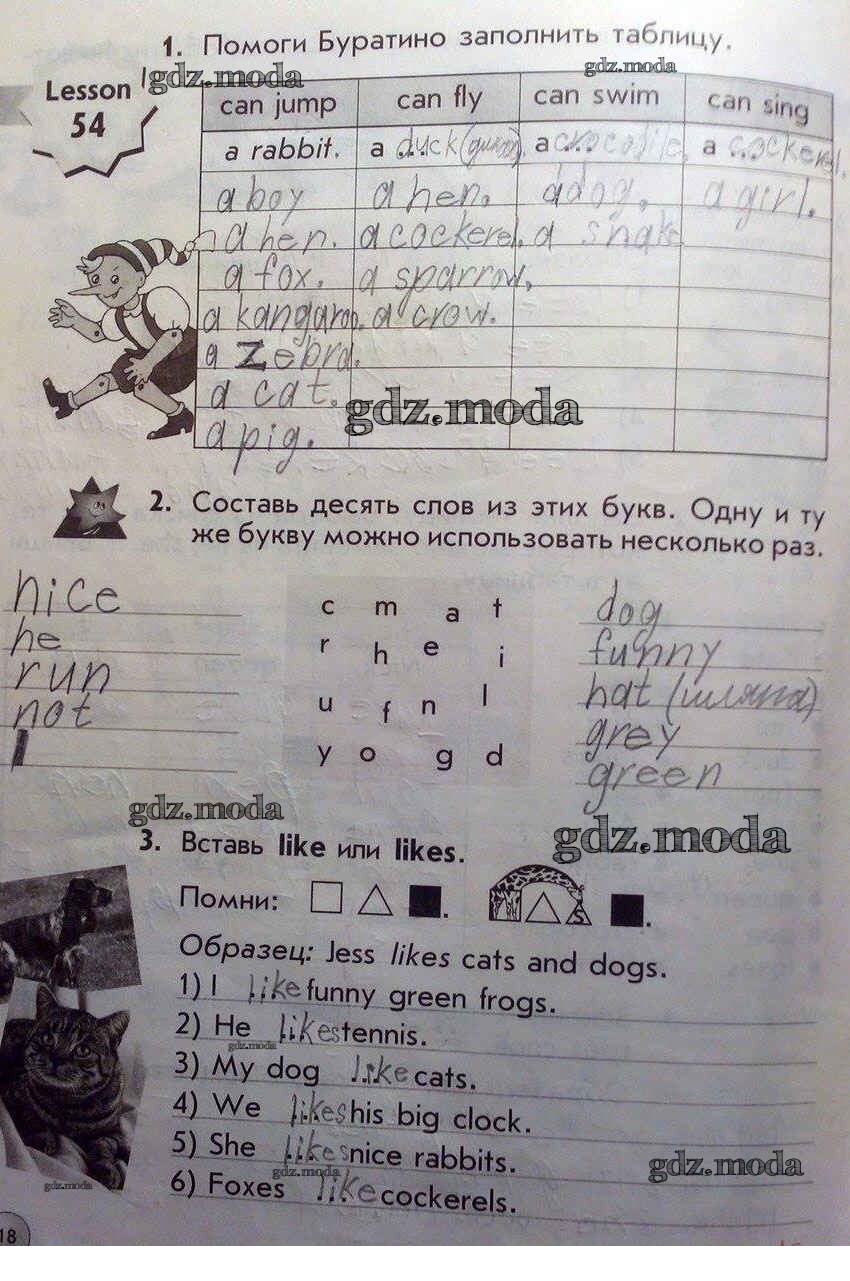 1. Помоги Буратино заполнить таблицу.
gdz.moda
gdz.moda
Lesson
54
can jump can fly can swim can sing
a rabbit. a duck a crocodile, a cockerel.
a boy a hen. a dog. a girl.
a hen. a cockerel. a snake
a fox. a sparrow.
a kangaroo. a crow.
a zebra.
a cat.
gdz.moda
a pig.
2. Составь десять слов из этих букв. Одну и ту
же букву можно использовать несколько раз.
nice
he
run
not
c m a t
r h e i
u f n l
y o g d
dog
funny
hat (шляпа)
grey
green
gdz.moda
gdz.moda
3. Вставь like или likes.
Помни:
. S .
Образец: Jess likes cats and dogs.
1) I like funny green frogs.
2) He likes tennis.
gdz.moda
3) My dog like cats.
4) We likes his big clock.
5) She likes nice rabbits.
gdz.moda
gdz.moda
6) Foxes like cockerels.
gdz.moda
18